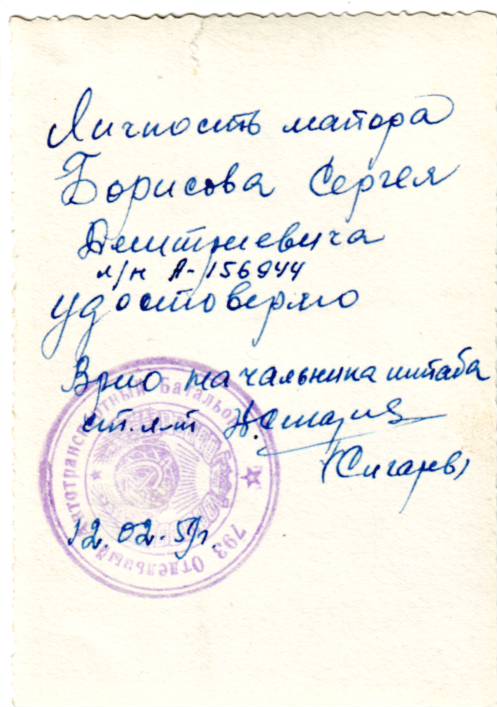 Личность майора
Борисова Сергея
Дмитриевича
л/н А-156944
удостоверяю
Врио начальника штаба
ст. л-т
(Сигарев)
12.02.59г.
793 Отдельный Автотранспортный Батальон